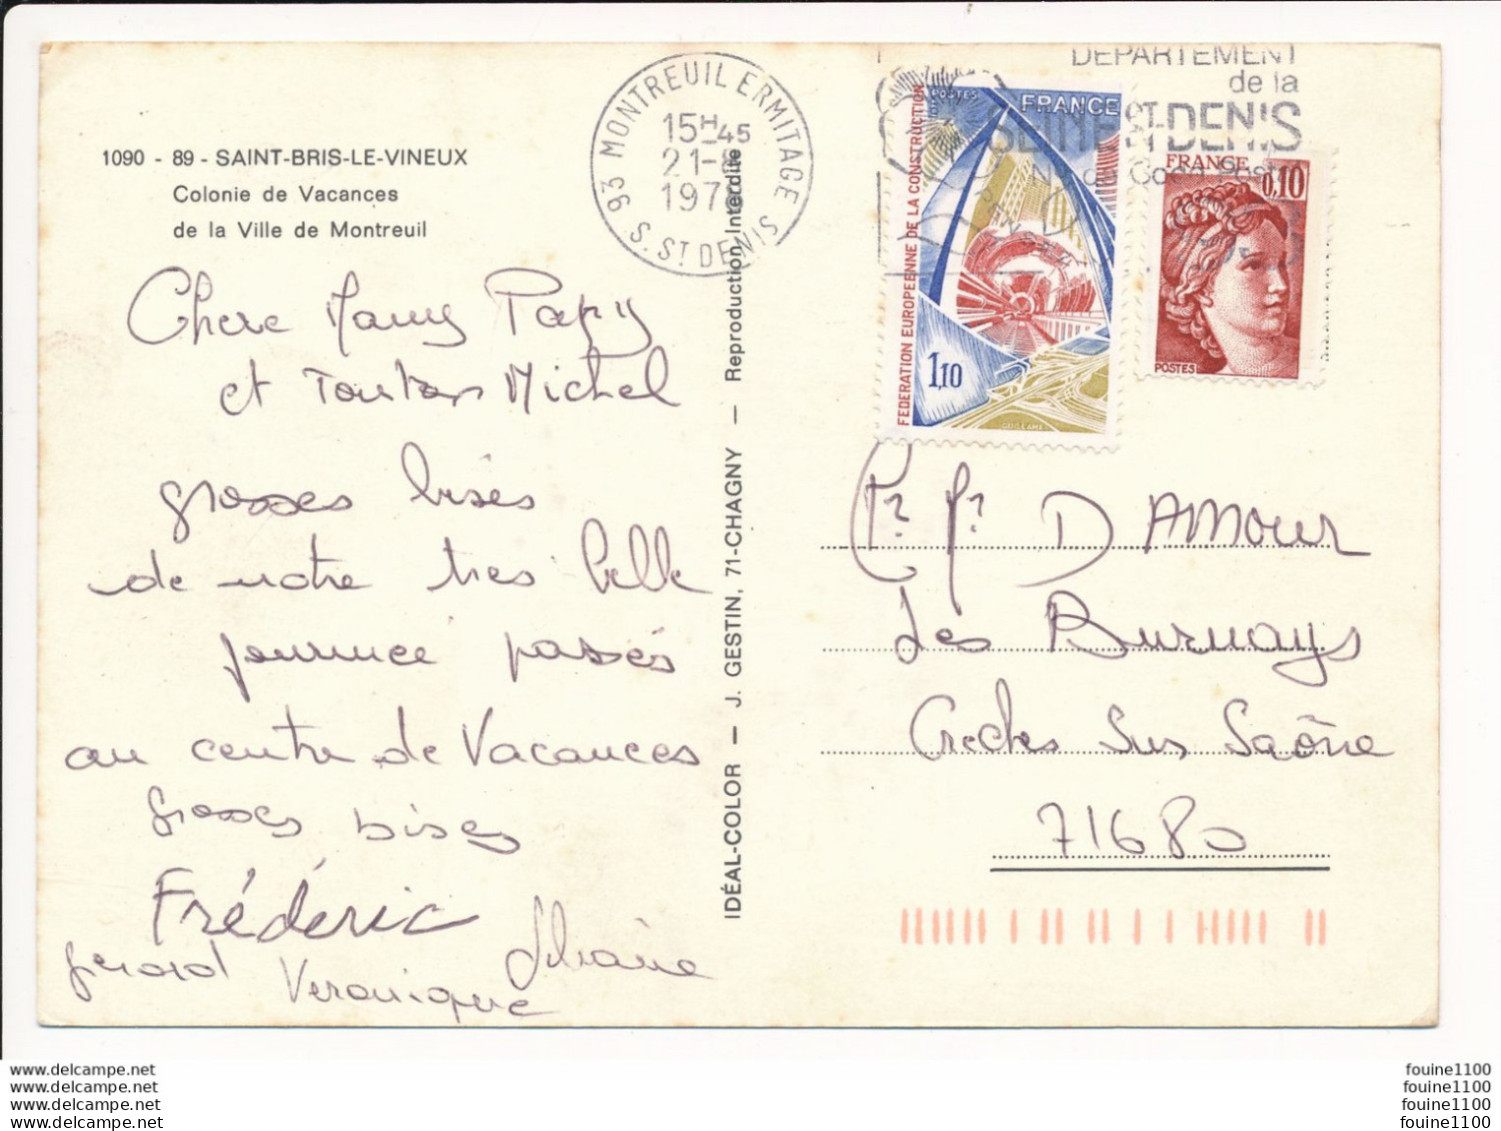 1090 - 89 - SAINT-BRIS-LE-VINEUX
Colonie de Vacances
de la Ville de Montreuil
Chere Mamy Papy
et Tonton Michel
grosses bises
de notre tres belle
journnee passés
au centre de Vacances
grosses bises
Frédéric
gerard Veronique
IDÉAL-COLOR — J. GESTIN, 71-CHAGNY — Reproduction Interdite
93 MONTREUIL ERMITAGE
15H45
21-8
1978
S. ST DENIS
DEPARTEMENT
de la
SEINE ST-DENIS
N° du Code Postal
POSTES
FRANCE
FEDERATION EUROPEENNE DE LA CONSTRUCTION
1,10
FRANCE
0,10
POSTES
DAMOUR
Les Burnays
Creches sur Saône
71680
www.delcampe.net
www.delcampe.net
www.delcampe.net
www.delcampe.net
fouine1100
fouine1100
fouine1100
fouine1100